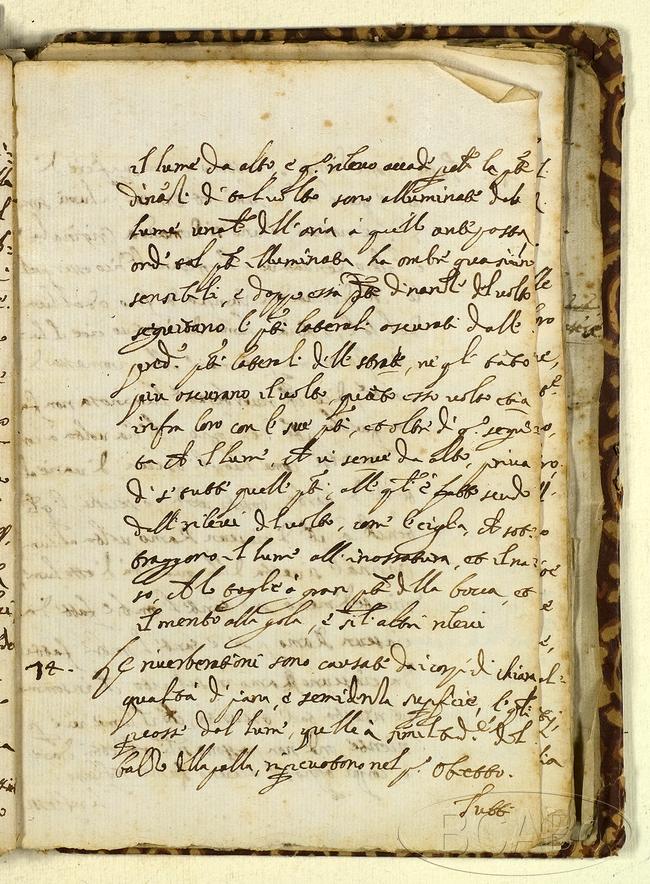 il lume da alto, e q.º rileuo accade, perche le pti
dinanti di tal uolto sono alluminate dal
lume unale dell'aria à quello anteposta
onde tal pte alluminata ha ombre quasi in
sensibili, e doppo essa pte dinanti del uolto
seguitano le pti laterali oscurati dalle
pred.e pti laterali delle strate, ne gli tato
piu oscurano il uolto, quato esso uolto età
infra loro con le sue pti, et oltre di q.º segui
ta che il lume, che ui scende da alto, priua
di se tutte quelle pti, alle qli è fatto scudo
dalli rileui del uolto, come le ciglia, che sot-
traggono il lume all'incassatura, et il na
so, che lo toglie à gran pte della bocca, et
il mento alla gola, e simili altri rileui
74. Le riuerberationi sono causate da i corpi di chiara
qualità di piana, e semidensa supficie, li qli
pcossi dal lume, quello à similitud.e del
balzo della palla, ripcuotono nel p.º obietto.
Tutt